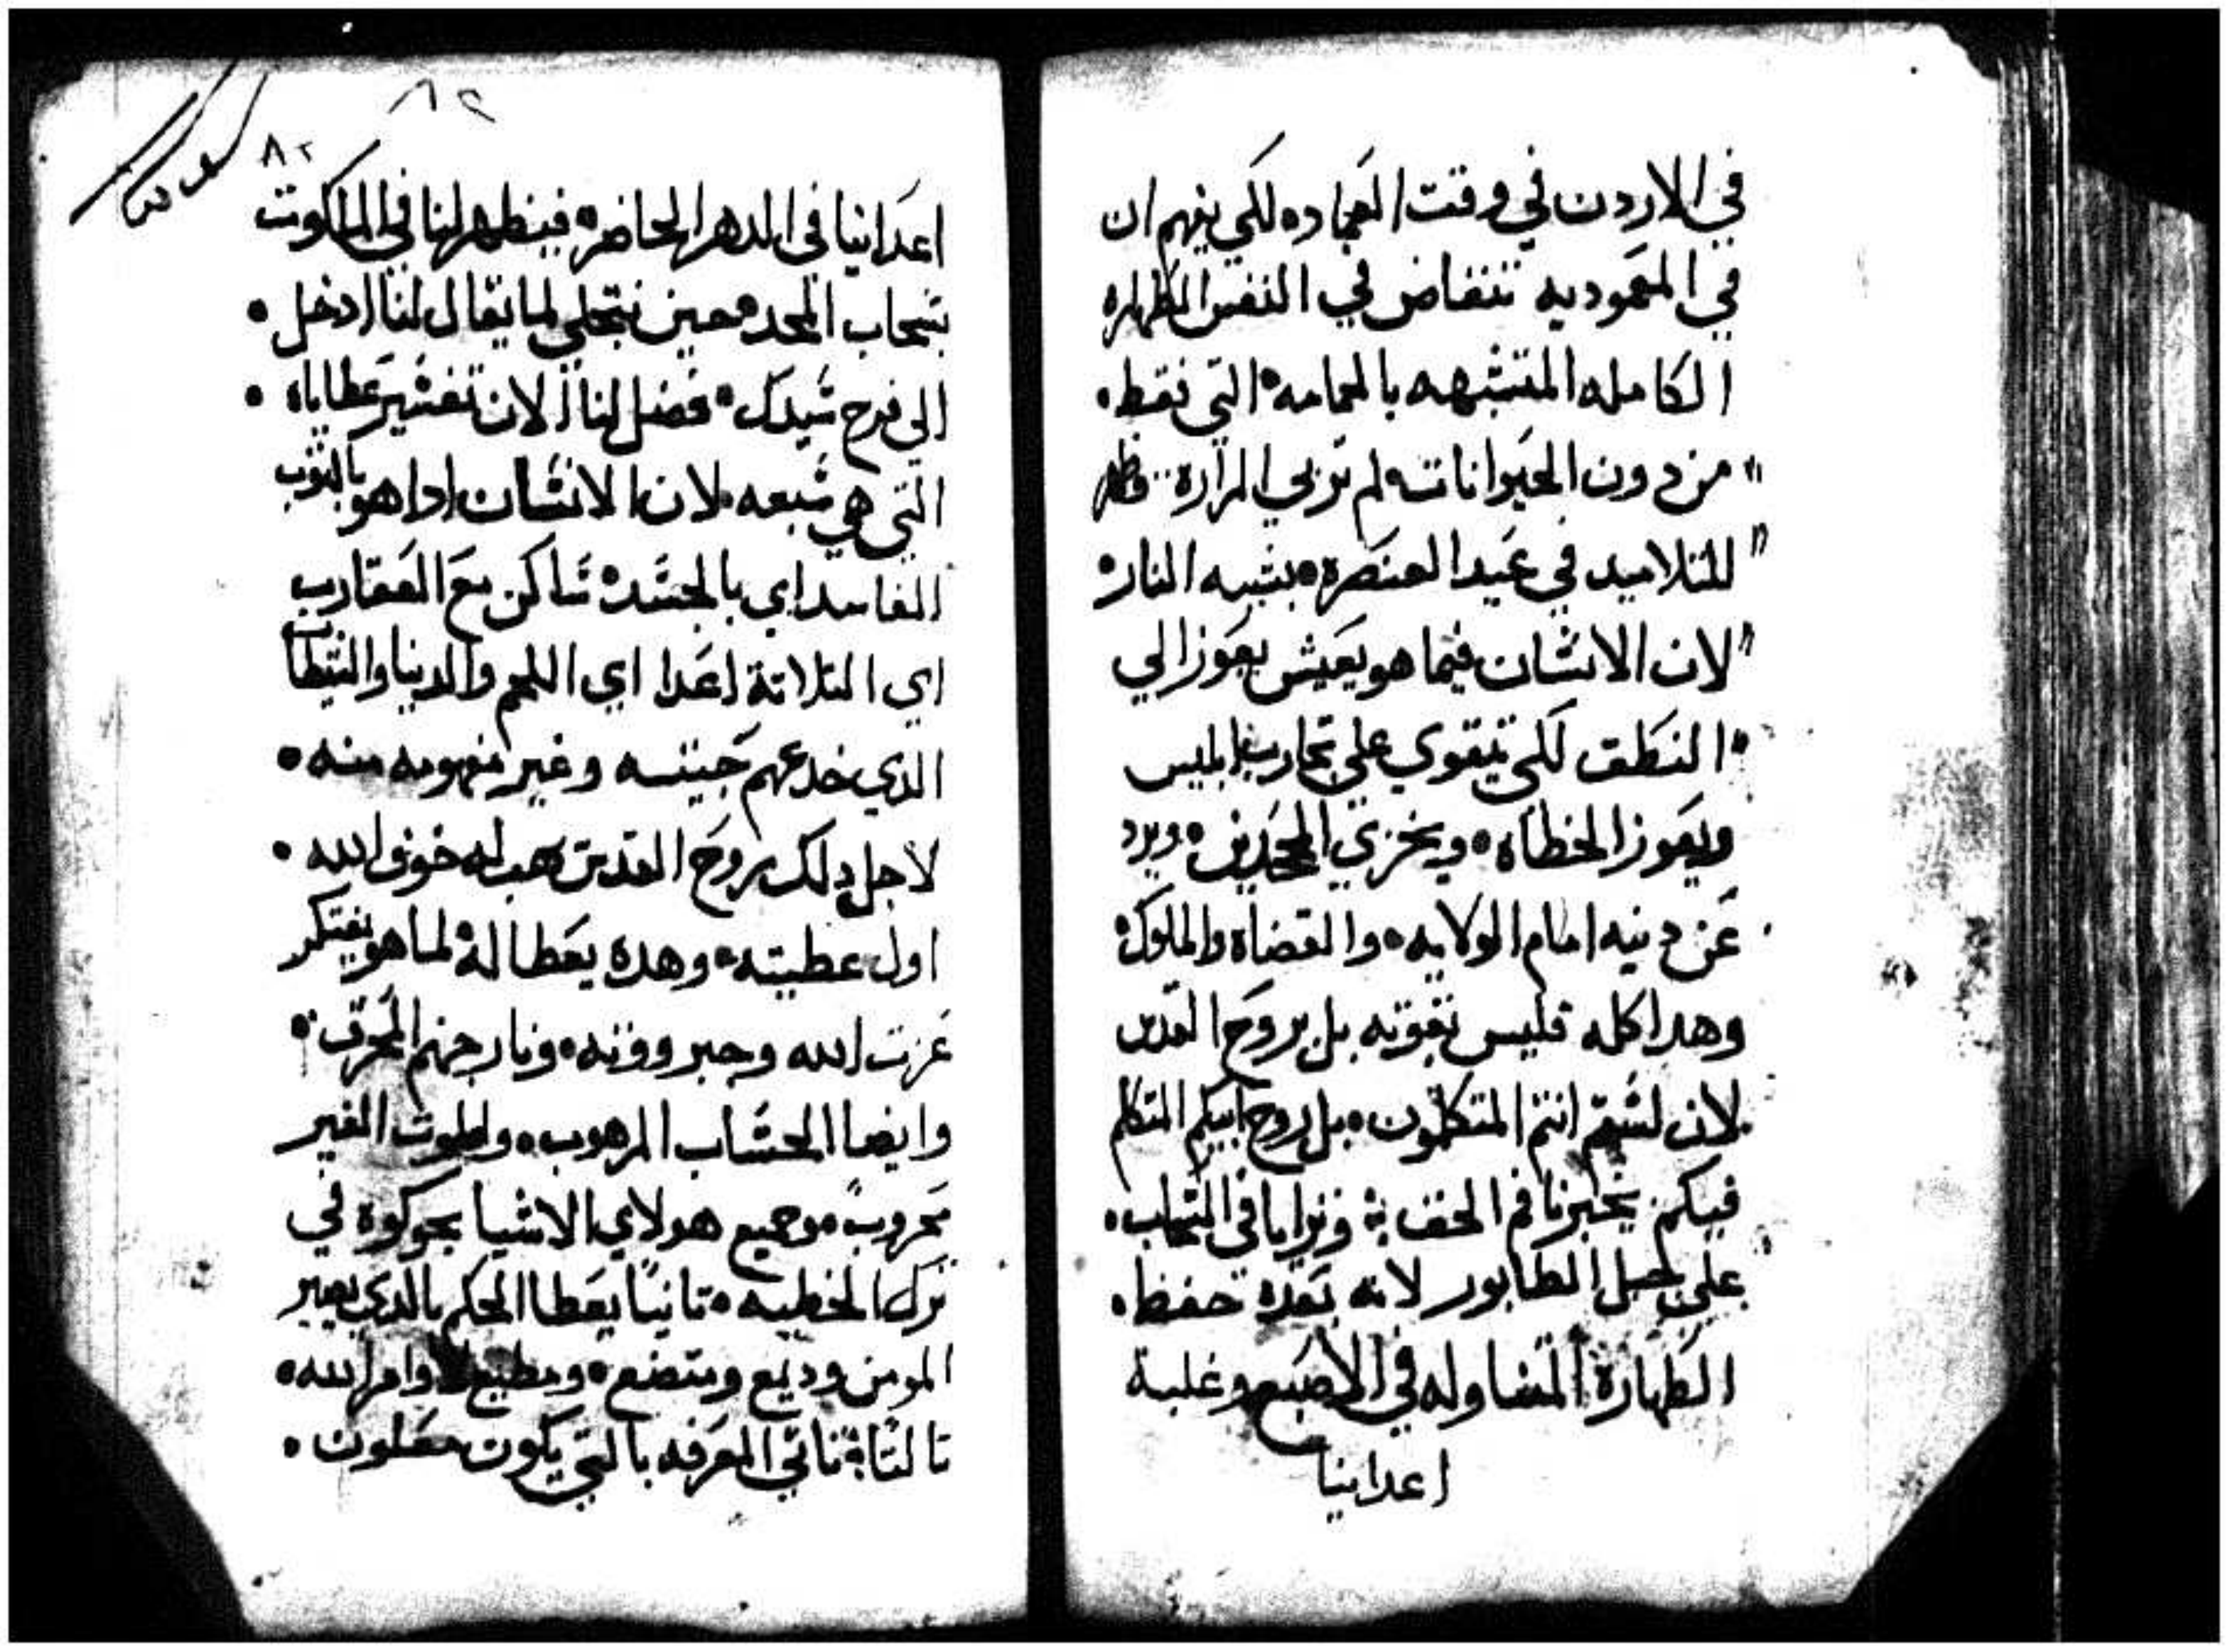 في الاردن في وقت العماده لكي يفهم ان
في المعموديه تنفاض في النفس الطهاره
الكامله المتشبهه بالحمامه التي فقط
من دون الحيوانات لم تربي المرارة وظهر
للتلاميد في عيد العنصرة بشبه النار
لان الانسان فيما هو يعيش يعوز الي
النطق لكي يتقوي علي تجارب ابليس
ويعوز الخطاه ويخزي المجدين ويرد
عن دينه امام الولايه والقضاه والملوك
وهدا كله فليس بقوته بل بروح القدس
لان لستم انتم المتكلمون بل روح ابيكم المتكلم
فيكم يخبرنا فم الحق وترايا في السحاب
علي جبل الطابور لانه بعده حفظ
الطهارة المتساوله في الاصبع وغلبة
اعداينا
٨٢
٨٢
اعداينا في الدهر الحاضر فينظهر لنا في الملكوت
بسحاب المجد حين نتجلي لما يقال لنا ادخل
الي فرح سيدك فضل لنا الان تفسير عطاياه
التي هي سبعه لان الانسان ادا هو بالتوب
الفاسد اي بالجسد ساكن مع العقارب
اي التلاتة اعدا اي اللحم والدنيا والشيطان
الدي خدعهم جينسه وغير مفهومه منه
لاجل دلك بروح القدس يهب له خوف الله
اول عطيته وهده يعطا له لما هو يفتكر
عزت الله وجبرووته ونار جهنم المحرقه
وايضا الحساب المرهوب والموت الغير
مهروب وجميع هولاي الاشيا يحوكوه في
ترك الخطيه تانيا يعطا الحكم بالدي يصير
المومن وديع ومتضع ومطيع لاوامر الله
تالتا تاتي المعرفه بالتي يكون معلون